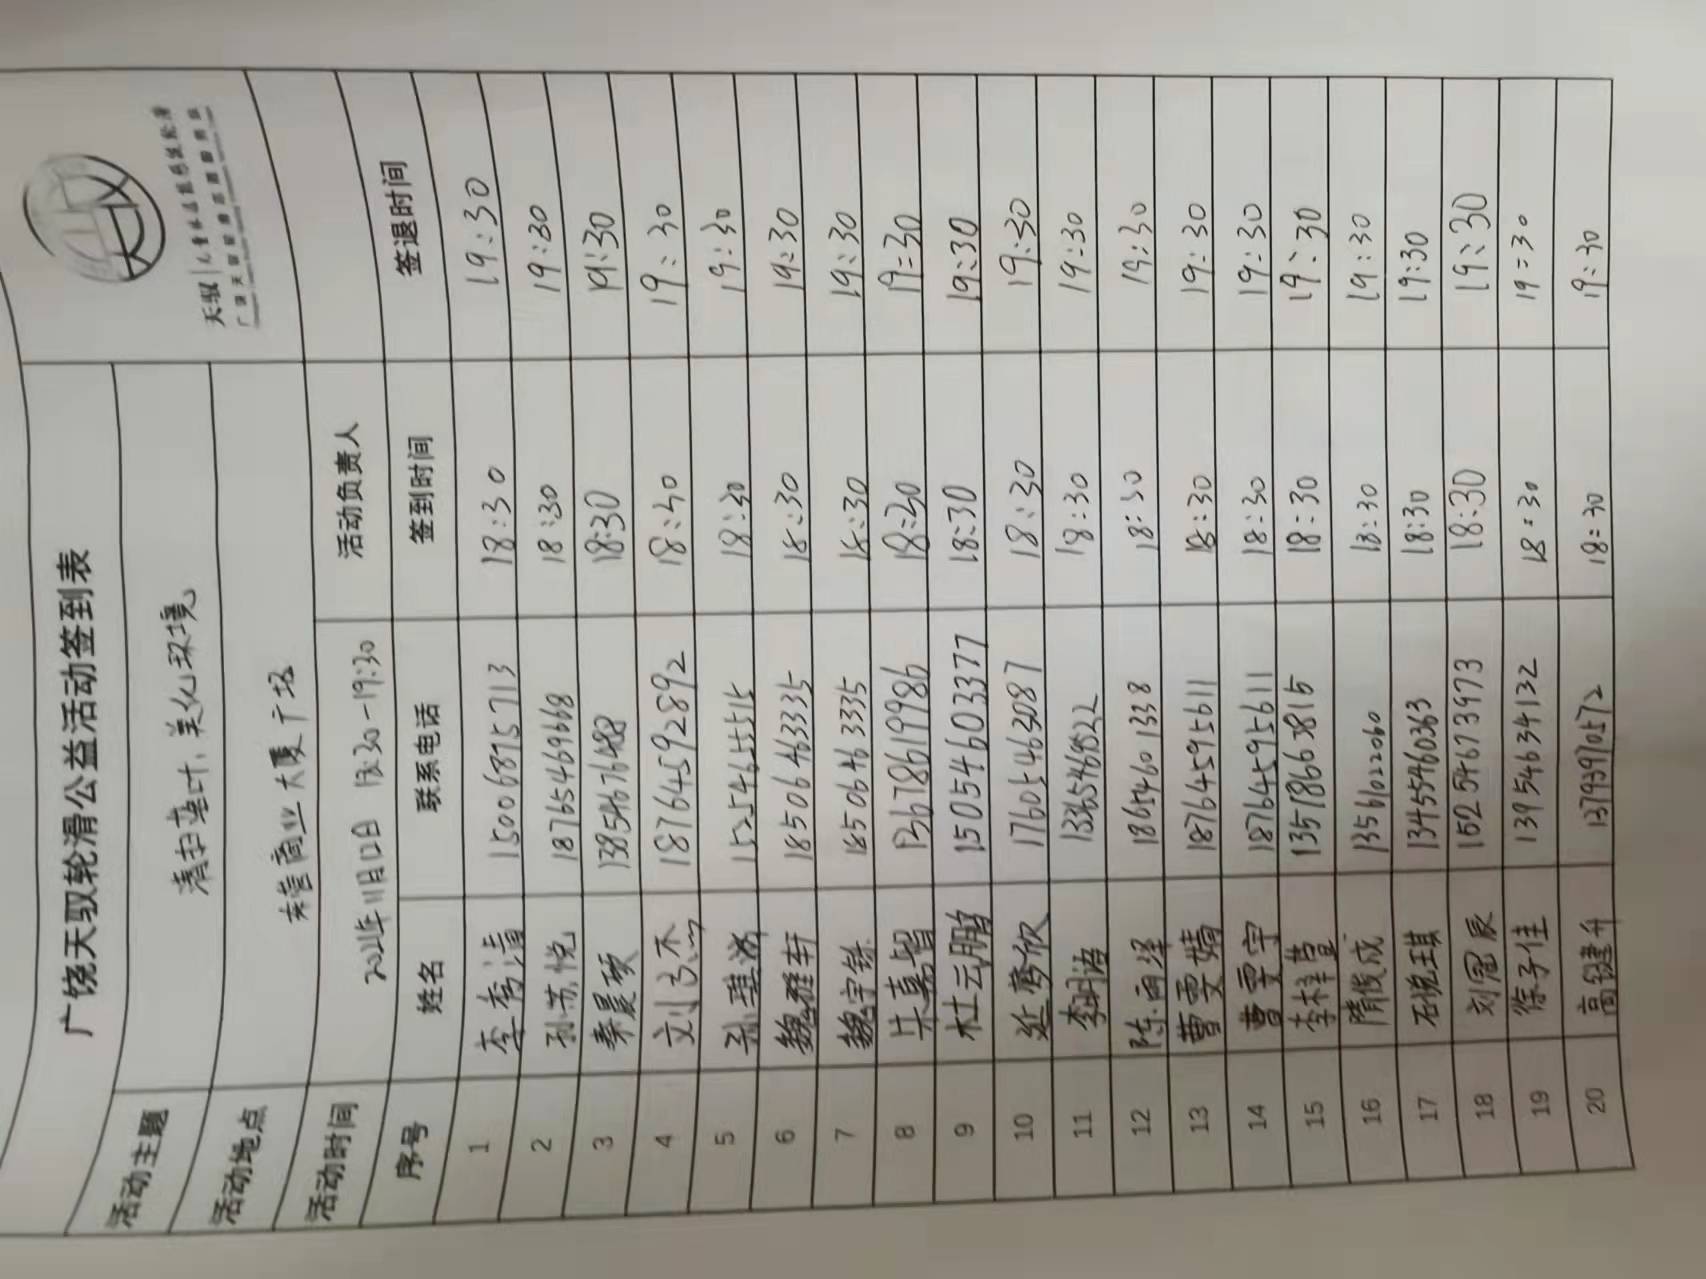 广饶天驭轮滑公益活动签到表
天驭 儿童体适能感统轮滑
活动主题 清扫垃圾，美化环境
活动地点 东营商业大厦广场
活动时间 2021年11月12日 18:30-19:30 活动负责人
序号 姓名 联系电话 签到时间 签退时间
1 李秀清 15006875713 18:30 19:30
2 孙苏悦 18765469668 18:30 19:30
3 秦晨硕 13854676488 18:30 19:30
4 18764592892 18:30 19:30
5 孙琪涵 15254655515 18:30 19:30
6 18506463335 18:30 19:30
7 魏宇铄 18506463335 18:30 19:30
8 朱嘉智 13678619986 18:30 19:30
9 杜云鹏 15054603377 18:30 19:30
10 延骞欣 17605463087 18:30 19:30
11 李明语 18:30 19:30
12 陈雨泽 18654601338 18:30 19:30
13 曹雯婧 18764595611 18:30 19:30
14 曹雯宇 18764595611 18:30 19:30
15 李梓萱 13518663815 18:30 19:30
16 隋俊成 13561022060 18:30 19:30
17 石悦琪 13455460363 18:30 19:30
18 刘冠辰 15254673973 18:30 19:30
19 徐子佳 13954634132 18:30 19:30
20 高健升 13793970572 18:30 19:30